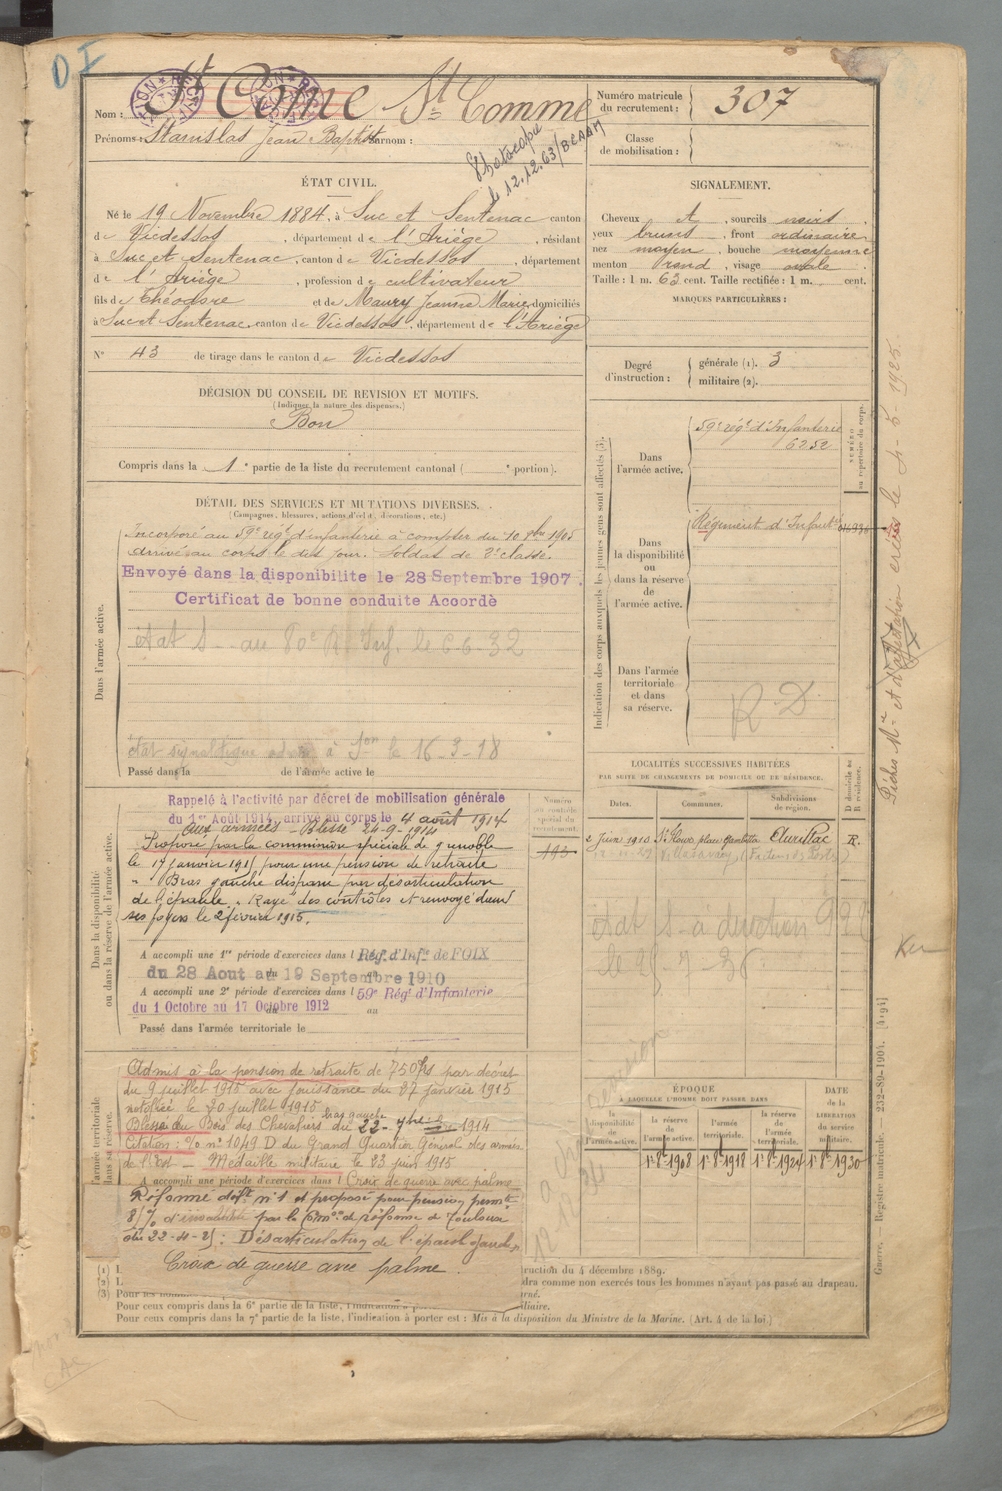 D I
Nom : St Côme St Comme
Prénoms : Stanislas Jean Baptiste Surnom :
Photocopie
le 12.12.63/BCAAM
Numéro matricule du recrutement : 307
Classe de mobilisation :
ÉTAT CIVIL.
Né le 19 Novembre 1884, à Suc et Sentenac canton
de Vicdessos, département de l'Ariège, résidant
à Suc et Sentenac, canton de Vicdessos, département
de l'Ariège, profession de cultivateur
fils de Théodore et de Maury Jeanne Marie domiciliés
à Suc et Sentenac, canton de Vicdessos, département de l'Ariège
N° 43 de tirage dans le canton de Vicdessos
SIGNALEMENT.
Cheveux et, sourcils noirs
yeux bruns, front ordinaire
nez moyen, bouche moyenne
menton rond, visage ovale
Taille : 1 m. 63 cent. Taille rectifiée : 1 m. cent.
MARQUES PARTICULIÈRES :
DÉCISION DU CONSEIL DE REVISION ET MOTIFS.
(Indiquer la nature des dispenses.)
Bon
Compris dans la 1e partie de la liste du recrutement cantonal ( e portion).
Degré d'instruction : générale (1). 3
militaire (2).
DÉTAIL DES SERVICES ET MUTATIONS DIVERSES.
(Campagnes, blessures, actions d'éclat, décorations, etc.)
Dans l'armée active.
Incorporé au 59e regt d'infanterie à compter du 10 8bre 1905
arrivé au corps le dit jour. Soldat de 2e classe.
Envoyé dans la disponibilite le 28 Septembre 1907.
Certificat de bonne conduite Accordè
état S au 80e R Inf. le 6-6-32
état signalétique le 16-3-18
Passé dans la de l'armée active le
Indication des corps auxquels les jeunes gens sont affectés (3).
NUMÉRO au répertoire du corps.
Dans l'armée active.
59e regt d'Infanterie
6252
Dans la disponibilité ou dans la réserve de l'armée active.
Régiment d'Infanterie
Dans l'armée territoriale et dans sa réserve.
R. D
Fiches Mle et d'affectation le 4-5-1925.
Dans la disponibilité ou dans la réserve de l'armée active.
Rappelé à l'activité par décret de mobilisation générale
du 1er Août 1914, arrivé au corps le 4 août 1914
Aux armées - Blessé 24-9-1914
Proposé par la commission spéciale de grenoble
le 17 janvier 1915 pour une pension de retraite
"Bras gauche disparu par désarticulation
de l'épaule". Rayé des contrôles et renvoyé dans
ses foyers le 2 février 1915.
A accompli une 1re période d'exercices dans l Rég. d'Infie de FOIX
du 28 Aout au 19 Septembre 1910
A accompli une 2e période d'exercices dans l 59e Régt d'Infanterie
du 1 Octobre au 17 Octobre 1912 au
Passé dans l'armée territoriale le
Numéro au contrôle spécial du recrutement.
193
LOCALITÉS SUCCESSIVES HABITÉES
PAR SUITE DE CHANGEMENTS DE DOMICILE OU DE RÉSIDENCE.
Dates. Communes. Subdivisions de région. D domicile ou R résidence.
2 Juin 1910 St Flour place Gambetta Aurillac R.
état S à direction
Admis à la pension de retraite de 750frs par décret
du 9 juillet 1915 avec jouissance du 27 janvier 1915
notifiée le 20 juillet 1915
bras gauche
Blessé au Bois des Chevaliers du 22-7bre 1914
Citation : % n° 1049 D du Grand Quartier Général des armées
de l'Est — Médaille militaire le 23 juin 1915
A accompli une période d'exercices dans l Croix de guerre avec palme
Réformé déft n° 1 et proposé pour pension permte
85% d'invalidité par la Comon de réforme de Toulouse
du 22-4-25 : Désarticulation de l'épaule gauche
Croix de guerre avec palme.
ÉPOQUE
À LAQUELLE L'HOMME DOIT PASSER DANS
la disponibilité de l'armée active.
la réserve de l'armée active. 1er 8bre 1908
l'armée territoriale. 1er 8bre 1918
la réserve de l'armée territoriale. 1er 8bre 1924
DATE de la LIBÉRATION du service militaire. 1er 8bre 1930
Guerre. — Registre matricule. — 232-89-1904. [4194]
(1) I
ruction du 4 décembre 1889.
(2) L
dra comme non exercés tous les hommes n'ayant pas passé au drapeau.
(3) Pour les
Pour ceux compris dans la 6e partie de la liste, l'indication à
iliaire.
Pour ceux compris dans la 7e partie de la liste, l'indication à porter est : Mis à la disposition du Ministre de la Marine. (Art. 4 de la loi.)